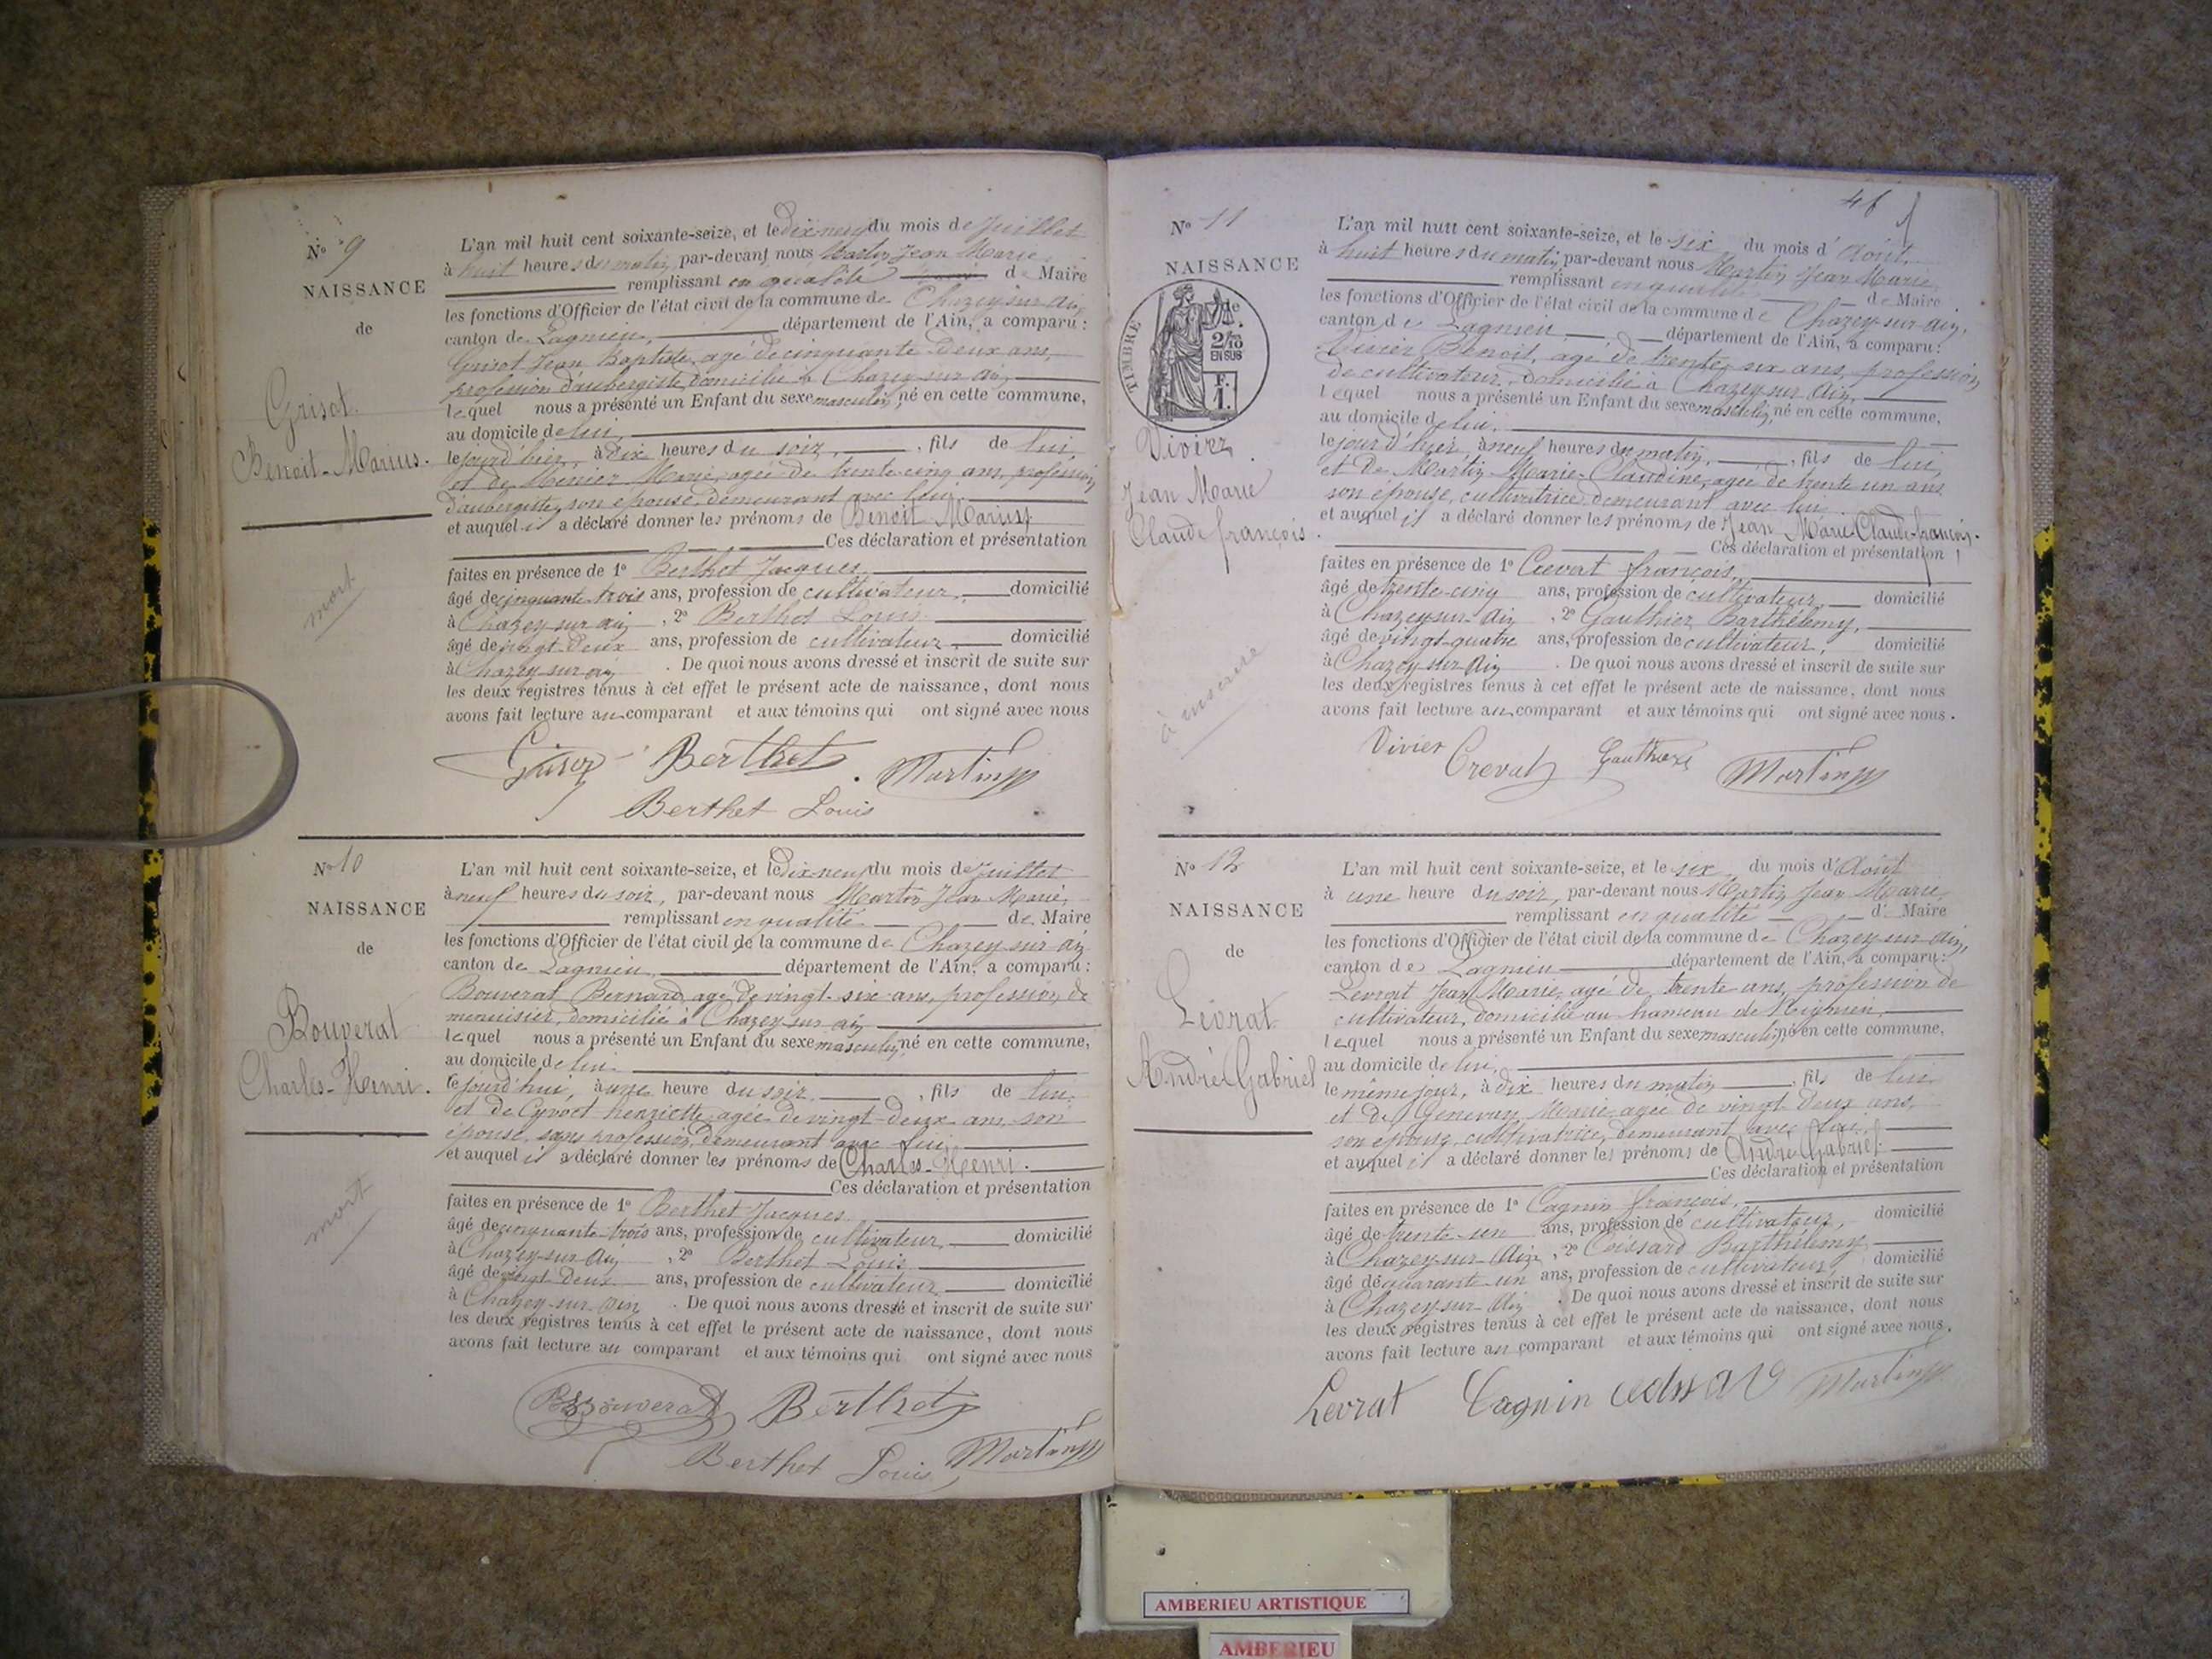 Nº 9
NAISSANCE
de
Grisot
Benoit-Marius.
mort
L'an mil huit cent soixante-seize, et le dix-neuf du mois de Juillet
à huit heures du matin, par-devant nous Martin Jean Marie
remplissant en qualité de Maire
les fonctions d'Officier de l'état civil de la commune de Chazey-sur-Ain,
canton de Lagnieu, département de l'Ain, a comparu :
Grisot Jean Baptiste, agé de cinquante deux ans,
profession d'aubergiste, domicilié à Chazey-sur-Ain,
lequel nous a présenté un Enfant du sexe masculin, né en cette commune,
au domicile de lui,
le jour d'hier, à dix heures du soir, , fils de lui,
et de Menier Marie, agée de trente-cinq ans, profession
d'aubergiste, son épouse, demeurant avec lui,
et auquel il a déclaré donner les prénoms de Benoit Marius
Ces déclaration et présentation
faites en présence de 1º Berthet Jacques,
âgé de cinquante-trois ans, profession de cultivateur, domicilié
à Chazey-sur-Ain , 2º Berthet Louis
âgé de vingt-deux ans, profession de cultivateur domicilié
à Chazey-sur-Ain . De quoi nous avons dressé et inscrit de suite sur
les deux registres tenus à cet effet le présent acte de naissance, dont nous
avons fait lecture au comparant et aux témoins qui ont signé avec nous
Grisot Berthet Martin
Berthet Louis
Nº 10
NAISSANCE
de
Bouverat
Charles-Henri.
mort
L'an mil huit cent soixante-seize, et le dix-neuf du mois de Juillet
à neuf heures du soir, par-devant nous Martin Jean Marie,
remplissant en qualité de Maire
les fonctions d'Officier de l'état civil de la commune de Chazey-sur-Ain
canton de Lagnieu, département de l'Ain, a comparu :
Bouverat Bernard, agé de vingt-six ans, profession de
menuisier, domicilié à Chazey-sur-Ain
lequel nous a présenté un Enfant du sexe masculin, né en cette commune,
au domicile de lui
le jourd'hui, à une heure du soir , fils de lui,
et de Cyvoct henriette, agée de vingt-deux ans, son
épouse, sans profession, demeurant avec lui,
et auquel il a déclaré donner les prénoms de Charles-Henri.
Ces déclaration et présentation
faites en présence de 1º Berthet Jacques
âgé de cinquante-trois ans, profession de cultivateur, domicilié
à Chazey-sur-Ain , 2º Berthet Louis
âgé de vingt deux ans, profession de cultivateur domicilié
à Chazey-sur-Ain . De quoi nous avons dressé et inscrit de suite sur
les deux registres tenus à cet effet le présent acte de naissance, dont nous
avons fait lecture au comparant et aux témoins qui ont signé avec nous
Bouverat Berthet
Berthet Louis Martin
46
Nº 11
NAISSANCE
de
TIMBRE
2/10
EN SUS
F.
1.
Vivier
Jean Marie
Claude françois.
à inscrire
L'an mil huit cent soixante-seize, et le six du mois d'Août.
à huit heures du matin, par-devant nous Martin Jean Marie,
remplissant en qualité de Maire
les fonctions d'Officier de l'état civil de la commune de Chazey-sur-Ain,
canton de Lagnieu département de l'Ain, a comparu :
Vivier Benoit, agé de trente-six ans, profession
de cultivateur, domicilié à Chazey-sur-Ain,
lequel nous a présenté un Enfant du sexe masculin, né en cette commune,
au domicile de lui,
le jour d'hier, à neuf heures du matin, , fils de lui,
et de Martin Marie-Claudine, agée de trente un ans
son épouse, cultivatrice, demeurant avec lui,
et auquel il a déclaré donner les prénoms de Jean Marie Claude françois.
Ces déclaration et présentation
faites en présence de 1º Crevat françois,
âgé de trente-cinq ans, profession de cultivateur, domicilié
à Chazey-sur-Ain , 2º Gauthier Barthélemy,
âgé de vingt-quatre ans, profession de cultivateur, domicilié
à Chazey-sur-Ain . De quoi nous avons dressé et inscrit de suite sur
les deux registres tenus à cet effet le présent acte de naissance, dont nous
avons fait lecture au comparant et aux témoins qui ont signé avec nous.
Vivier Crevat Gauthier Martin
Nº 12
NAISSANCE
de
Lévrat
André Gabriel
L'an mil huit cent soixante-seize, et le six du mois d'Août
à une heure du soir, par-devant nous Martin Jean Marie,
remplissant en qualité de Maire
les fonctions d'Officier de l'état civil de la commune de Chazey-sur-Ain,
canton de Lagnieu département de l'Ain, a comparu :
Levrat Jean Marie, agé de trente ans, profession de
cultivateur, domicilié au hameau de Rignieu,
lequel nous a présenté un Enfant du sexe masculin, né en cette commune,
au domicile de lui,
le même jour, à dix heures du matin , fils de lui
et de Genevay Marie, agée de vingt deux ans,
son épouse, cultivatrice, demeurant avec lui,
et auquel il a déclaré donner les prénoms de André Gabriel
Ces déclaration et présentation
faites en présence de 1º Cagnin françois,
âgé de trente-un ans, profession de cultivateur, domicilié
à Chazey-sur-Ain, 2º Coissard Barthélemy
âgé de quarante-un ans, profession de cultivateur, domicilié
à Chazey-sur-Ain . De quoi nous avons dressé et inscrit de suite sur
les deux registres tenus à cet effet le présent acte de naissance, dont nous
avons fait lecture au comparant et aux témoins qui ont signé avec nous.
Levrat Cagnin Martin
AMBERIEU ARTISTIQUE
AMBERIEU